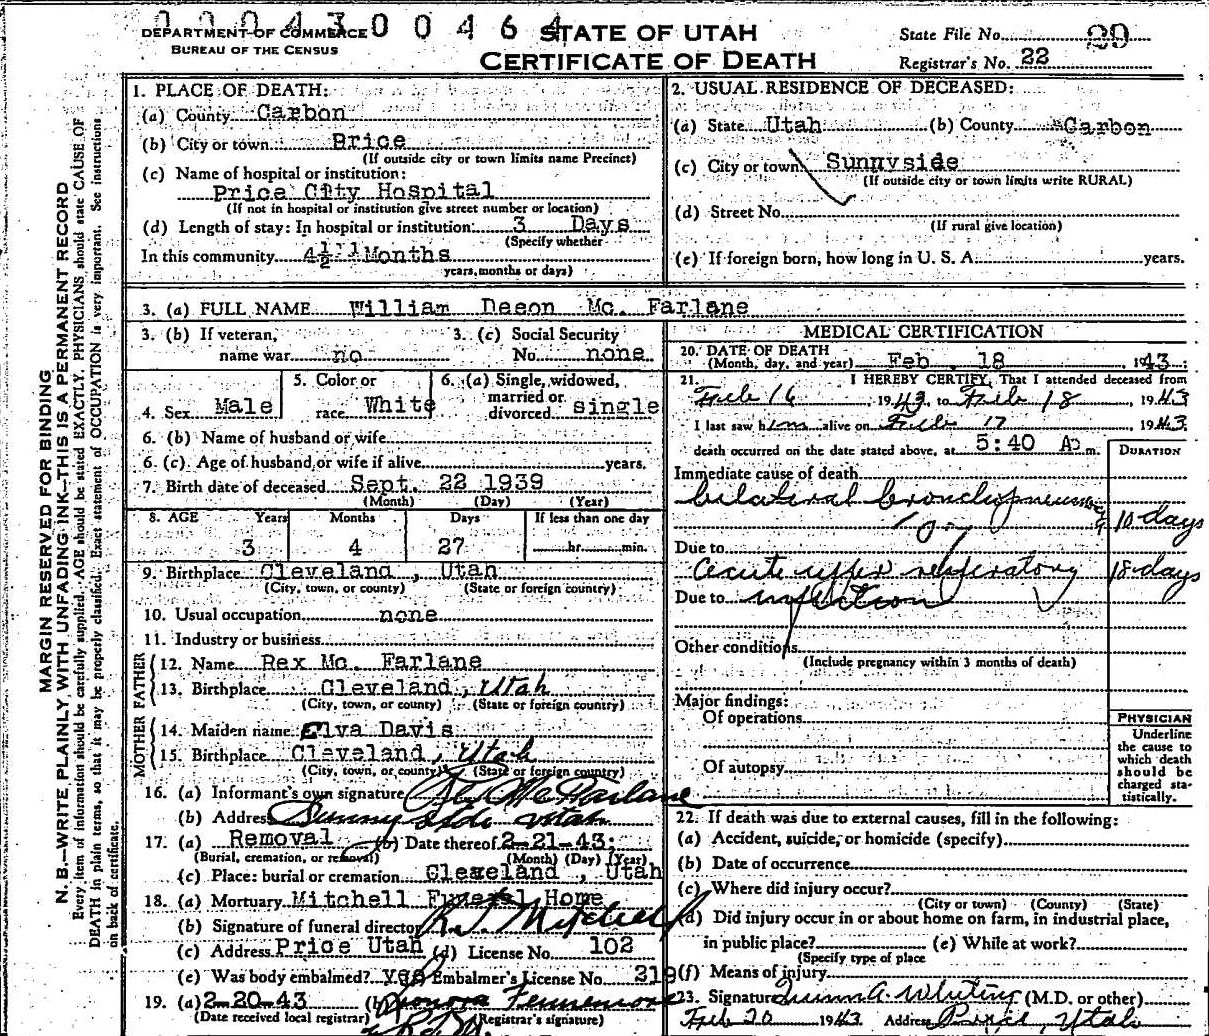 0004300464
DEPARTMENT OF COMMERCE
BUREAU OF THE CENSUS
STATE OF UTAH
CERTIFICATE OF DEATH
State File No. 29
Registrar's No. 22
MARGIN RESERVED FOR BINDING
N. B.—WRITE PLAINLY WITH UNFADING INK—THIS IS A PERMANENT RECORD
Every item of information should be carefully supplied. AGE should be stated EXACTLY. PHYSICIANS should state CAUSE OF
DEATH in plain terms, so that it may be properly classified. Exact statement of OCCUPATION is very important. See instructions
on back of certificate.
1. PLACE OF DEATH:
(a) County Carbon
(b) City or town Price
(If outside city or town limits name Precinct)
(c) Name of hospital or institution:
Price City Hospital
(If not in hospital or institution give street number or location)
(d) Length of stay: In hospital or institution: 3 Days
(Specify whether
In this community 4½ Months
years, months or days)
2. USUAL RESIDENCE OF DECEASED:
(a) State Utah (b) County Carbon
(c) City or town Sunnyside
(If outside city or town limits write RURAL)
(d) Street No.
(If rural give location)
(e) If foreign born, how long in U. S. A. years.
3. (a) FULL NAME William Deeon Mc. Farlane
3. (b) If veteran, name war no
3. (c) Social Security No. none
4. Sex Male
5. Color or race White
6. (a) Single, widowed, married or divorced single
6. (b) Name of husband or wife
6. (c). Age of husband or wife if alive years.
7. Birth date of deceased Sept. 22 1939
(Month) (Day) (Year)
8. AGE Years Months Days If less than one day
3 4 27 hr. min.
9. Birthplace Cleveland, Utah
(City, town, or county) (State or foreign country)
10. Usual occupation none
11. Industry or business
FATHER
12. Name Rex Mc. Farlane
13. Birthplace Cleveland, Utah
(City, town, or county) (State or foreign country)
MOTHER
14. Maiden name Elva Davis
15. Birthplace Cleveland, Utah
(City, town, or county) (State or foreign country)
16. (a) Informant's own signature Rex McFarlane
(b) Address Sunnyside Utah
17. (a) Removal (b) Date thereof 2-21-43
(Burial, cremation, or removal) (Month) (Day) (Year)
(c) Place: burial or cremation Cleveland, Utah
18. (a) Mortuary Mitchell Funeral Home
(b) Signature of funeral director Mitchell
(c) Address Price Utah (d) License No. 102
(e) Was body embalmed? yes Embalmer's License No. 219
19. (a) 2-20-43 (b)
(Date received local registrar) (Registrar's signature)
MEDICAL CERTIFICATION
20. DATE OF DEATH
(Month, day, and year) Feb. 18 1943
21. I HEREBY CERTIFY, That I attended deceased from
Feb 16, 1943, to Feb 18, 1943
I last saw him alive on Feb 17, 1943.
death occurred on the date stated above, at 5:40 A. m.
DURATION
Immediate cause of death
bilateral bronchopneumonia 10 days
107
Due to
acute upper respiratory 18 days
Due to infection
Other conditions
(Include pregnancy within 3 months of death)
Major findings:
Of operations
Of autopsy
PHYSICIAN
Underline
the cause to
which death
should be
charged sta-
tistically.
22. If death was due to external causes, fill in the following:
(a) Accident, suicide, or homicide (specify)
(b) Date of occurrence
(c) Where did injury occur?
(City or town) (County) (State)
(d) Did injury occur in or about home on farm, in industrial place,
in public place? (e) While at work?
(Specify type of place
(f) Means of injury
23. Signature Quinn A. Whiting (M.D. or other)
Feb 20 1943 Address Price, Utah